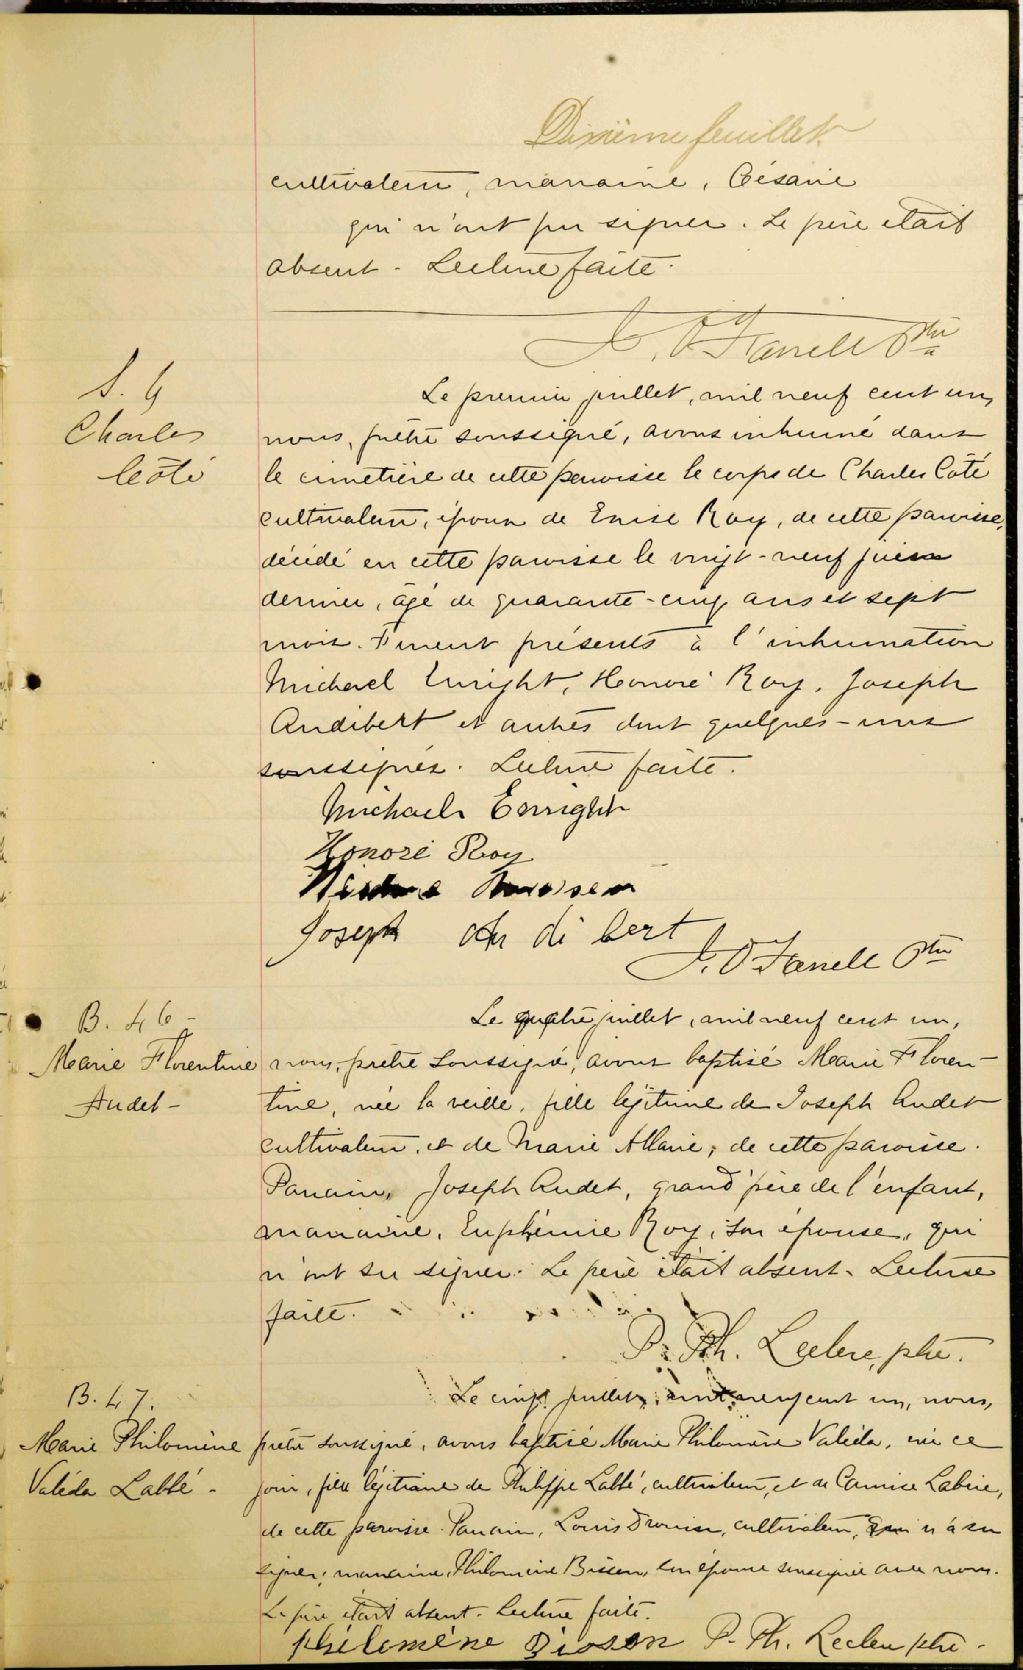 Dixième feuillet
cultivateur, marraine, Césarie
qui n'ont pu signer. Le père était
absent. Lecture faite.
J. O'Farrell Ptre
S. 9
Charles
Côté
Le premier juillet, mil neuf cent un,
nous, prêtre soussigné, avons inhumé dans
le cimetière de cette paroisse le corps de Charles Coté
cultivateur, époux de Enise Roy, de cette paroisse,
décédé en cette paroisse le vingt-neuf juin
dernier, âgé de quarante-cinq ans et sept
mois. Furent présents à l'inhumation
Michael Enright, Honoré Roy, Joseph
Audibert et autres dont quelques-uns
soussignés. Lecture faite.
Michael Enright
Honoré Roy
Joseph Au di bert
J. O'Farrell Ptre
B. 46 -
Marie Florentine
Audet -
Le quatre juillet, mil neuf cent un,
nous, prêtre soussigné, avons baptisé Marie Floren-
tine, née la veille, fille légitime de Joseph Audet
cultivateur, et de Marie Allaire, de cette paroisse.
Parrain, Joseph Audet, grand'père de l'enfant,
marraine, Euphémie Roy, son épouse, qui
n'ont su signer. Le père était absent. Lecture
faite.
P. Ph. Leclerc, ptre.
B. 47.
Marie Philomène
Valéda Labbé -
Le cinq juillet, mil neuf cent un, nous,
prêtre soussigné, avons baptisé Marie Philomène Valéda, née ce
jour, fille légitime de Philippe Labbé, cultivateur, et de
de cette paroisse. Parrain, Louis Drouin, cultivateur, qui n'a su
signer; marraine, Philomène Bisson, son épouse soussignée avec nous.
Le père était absent. Lecture faite.
Philomène Bisson P. Ph. Leclerc ptre -